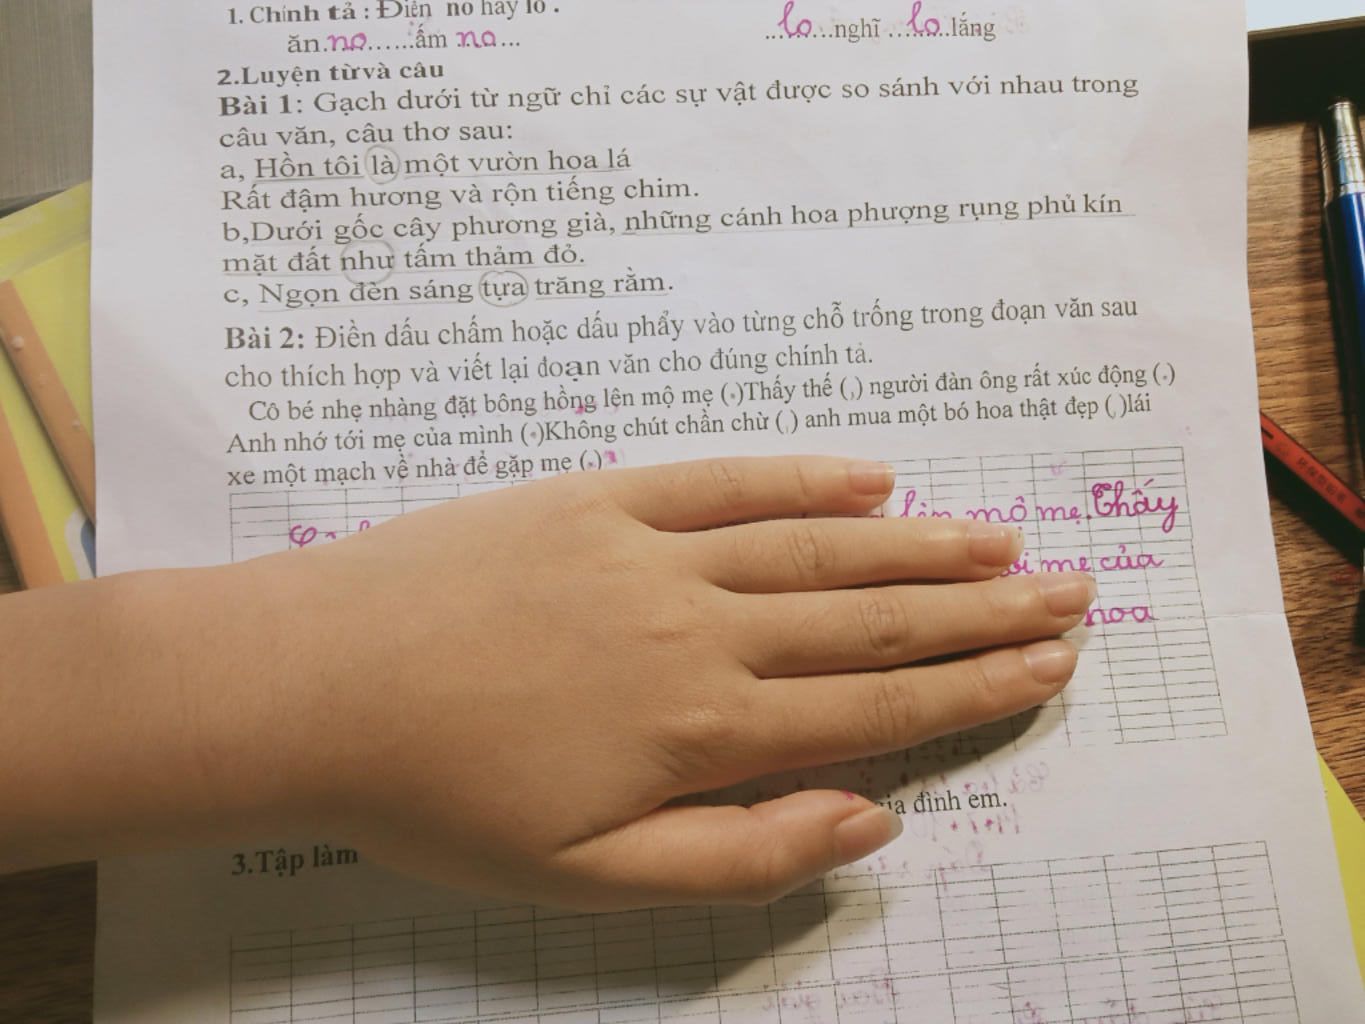 1. Chính tả : Điền no hay lo .
ăn.no......ấm no...
......lo...nghĩ ...lo...lắng
2.Luyện từ và câu
Bài 1: Gạch dưới từ ngữ chỉ các sự vật được so sánh với nhau trong
câu văn, câu thơ sau:
a, Hồn tôi là một vườn hoa lá
Rất đậm hương và rộn tiếng chim.
b,Dưới gốc cây phương già, những cánh hoa phượng rụng phủ kín
mặt đất như tấm thảm đỏ.
c, Ngọn đèn sáng tựa trăng rằm.
Bài 2: Điền dấu chấm hoặc dấu phẩy vào từng chỗ trống trong đoạn văn sau
cho thích hợp và viết lại đoạn văn cho đúng chính tả.
Cô bé nhẹ nhàng đặt bông hồng lên mộ mẹ (.)Thấy thế (,) người đàn ông rất xúc động (.)
Anh nhớ tới mẹ của mình (.)Không chút chần chừ (,) anh mua một bó hoa thật đẹp (,)lái
xe một mạch về nhà để gặp mẹ (.)
lên mộ mẹ. Thấy
mẹ của
hoa
gia đình em.
3.Tập làm